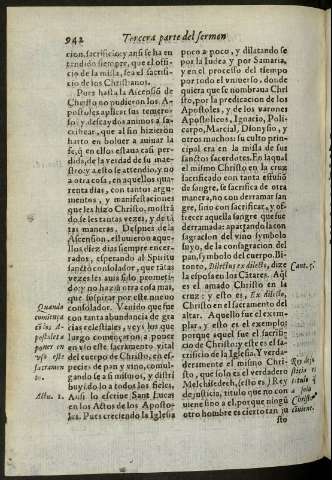 942 Tercera parte del sermon
cion, sacrificio: y ansi se ha en
tendido siempre, que el offi-
cio de la missa, sea el sacrifi-
cio de los Christianos.
Pues hasta la Ascensiō de
Christo no pudieron los A-
postoles aplicar sus temero-
sos y descaydos animos a sa-
crificar, que al fin hizieron
harto en boluer a auiuar la
fe, q̄ en ellos estaua casi per-
dida, de la verdad de su mae-
stro: y a esto se attendio, y no
a otra cosa, en aquellos qua-
renta dias, con tantos argu-
mentos, y manifestaciones
que les hizo Christo, mostrā
dose les tantas vezes, y de tā
tas maneras. Despues de la
Ascension, estuuieron aque-
llos diez dias siempre encer-
rados, esperando al Spiritu
sancto consolador, que tātas
vezes les auia sido prometi-
do: y no hazia otra cosa mas,
que suspirar por este nueuo
Quando consolador. Venido que fue
comiença con tanta abundancia de gra
cias celestiales, veys los que
luego començaron, a poner
en vso este sacramento vital
del cuerpo de Christo, en es-
pecies de pan y vino, comul-
gando se a si mismos, y distri
buyēdo lo a todos los fieles.
Actu. 1. Ansi lo escriue Sant Lucas
en los Actos de los Aposto-
les. Pues creciendo la Iglesia
poco a poco, y dilatando se
por la Iudea y por Samaria,
y en el processo del tiempo
por todo el vniuerso, donde
quiera que se nombraua Chri
sto, por la predicacion de los
Apostoles, y de los varones
Apostolicos, Ignacio, Poli-
carpo, Marcial, Dionysio, y
otros muchos: su culto prin-
cipal era en la missa de sus
sanctos sacerdotes. En la qual
el mismo Christo en la cruz
sacrificado con tanta effusiō
de sangre, se sacrifica de otra
manera, no con derramar san
gre, sino con sacrificar, y of-
frecer aquella sangre que fue
derramada: apartando la con
sagracion del vino symbolo
suyo, de la consagracion del
pan, symbolo del cuerpo. Bi-
tonto, Dilectus ex dilecto, dize
la esposa en los Cātares. Aqui Cant. 5.
es el amado Christo en la
cruz: y esto es, Ex dilecto,
Christo en el sacramento del
altar. Aquello fue el exem-
plar, y esto es el exemplo:
porque aquel fue el sacrifi-
cio de Christo: y este es el sa-
crificio de la Iglesia. Y verda-
deramente el mismo Chri-
sto, que solo es el verdadero
Melchisedech, (esto es) Rey
de justicia, titulo que no con
uiene sino a el, porque ningū
otro hombre es cierto tan ju
sto